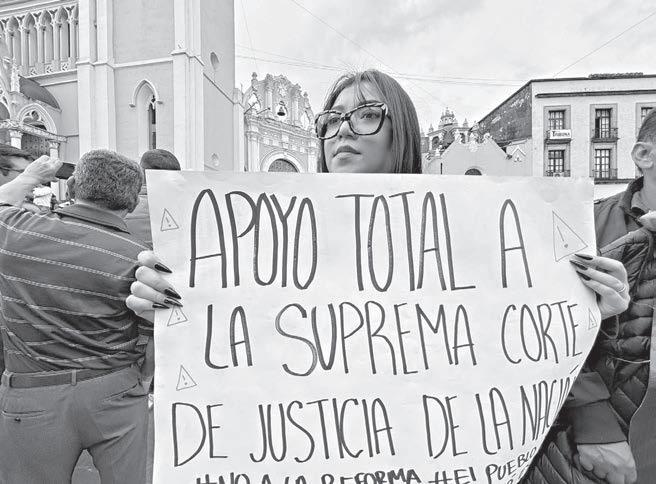 APOYO TOTAL A
LA SUPREMA CORTE
DE JUSTICIA DE LA NACIÓ
#NO A LA REFORMA #El PUEBLO